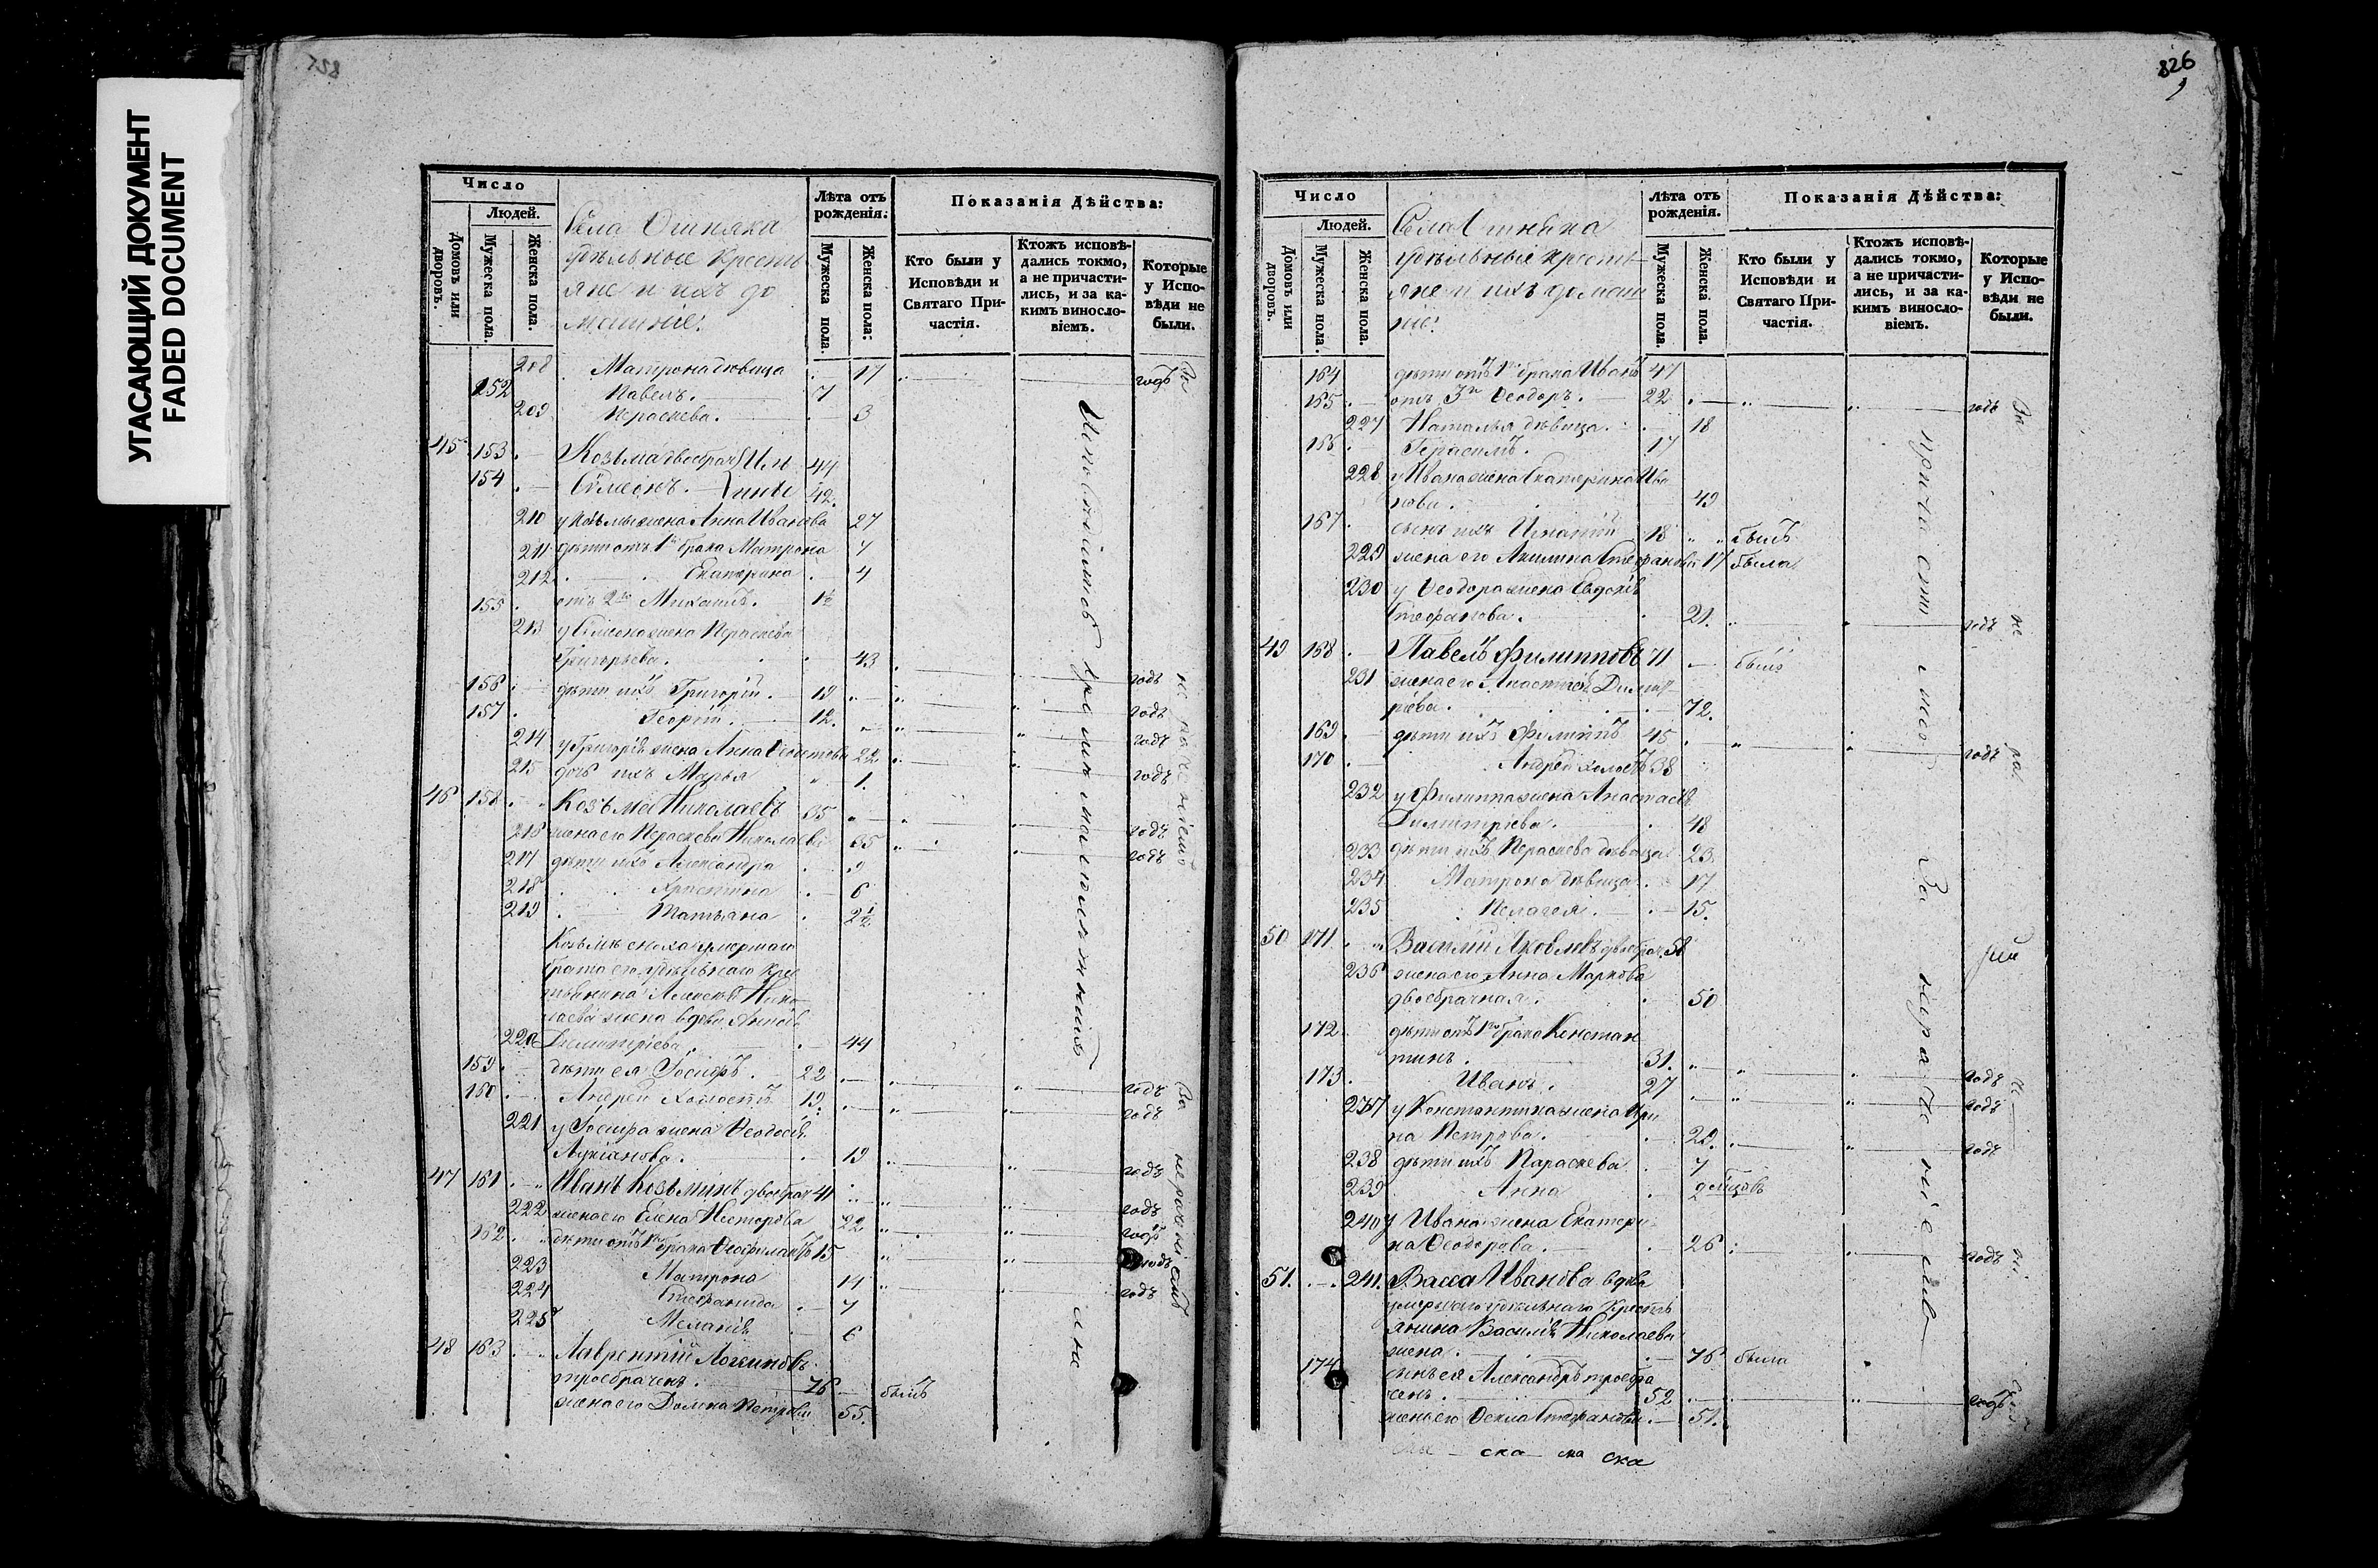 УГАСАЮЩИЙ ДОКУМЕНТ
FADED DOCUMENT
Число
Людей.
Домовъ или дворовъ.
Мужеска пола.
Женска пола.
Села Ошняка
удѣльные крестья
яне и ихъ до
машніе:
Лѣта отъ рожденія:
Мужеска пола.
Женска пола:
Показанія Дѣйства:
Кто были у Исповѣди и Святаго Причастія.
Ктожъ исповѣдались токмо, а не причастились, и за какимъ винословіемъ.
Которые у Исповѣди не были.
208 Матрона дѣвица 17 годъ
152 Павелъ. 7
209 Параскева. 3
45 153 Козьма двоебрач Иль 44
154 Сѵмеонъ. ины 42.
210 у Козьмы жена Анна Иванова 27
211 дѣти отъ 1го брака Матрона 7
212 Екатерина 4
155 отъ 2го Михаилъ. 1½
213 у Сѵмеона жена Параскева
Григорьева. 43 годъ
156 дѣти ихъ Григорій. 19 годъ
157 Георгій. 12. годъ
214 у Григорія жена Анна 22 годъ
215 дочь ихъ Марья 1.
46 158 Козьма Николаевъ 35 годъ
216 жена его Параскева Николаева 35 годъ
217 дѣти ихъ Александра 9
218 Христина 6
219 Татьяна 2½
Козьмѣ сноха умершаго
брата его удѣльнаго кре
стьянина Алексѣя Нико
лаева жена вдова Анна
220 Димитріева. 44
159 дѣти ея Іосифъ. 22 годъ
160 Андрей холостъ 19. годъ
221 у Іосифа жена Ѳеодосія
Лукіанова. 19 годъ
47 161 Иванъ Козьминъ двоебрач 41 годъ
222 жена его Елена Несторова 22 годъ
162 дѣти отъ 1го брака Ѳеофилактъ 15 годъ
223 Матрона 11 годъ
224 Стефанида 7
225 Меланія 6
48 163 Лаврентій Логиновъ
троебраченъ. 76 былъ
жена его Домна Петрова 55.
826
Число
Людей.
Домовъ или дворовъ.
Мужеска пола.
Женска пола.
Села Ошняка
удѣльные крестья
яне и ихъ домаш
ніе:
Лѣта отъ рожденія.
Мужеска пола.
Женска пола.
Показанія Дѣйства:
Кто были у Исповѣди и Святаго Причастія.
Ктожъ исповѣдались токмо, а не причастились, и за какимъ винословіемъ.
Которые у Исповѣди не были.
164 дѣти отъ 1го брака Иванъ 47
165 отъ 3го Ѳеодоръ. 22 годъ
227 Наталья дѣвица. 18
166 Герасимъ. 17
228 у Ивана жена Екатерина Ива
нова. 49
167 сынъ ихъ Игнатій 18 былъ
229 жена его Акилина Стефанова 17 была
230 у Ѳеодора жена Евдокія
Стефанова. 21. годъ
49 168 Павелъ Филипповъ 71 былъ
231 жена его Анастасія Димит
ріева. 72.
169 дѣти ихъ Филиппъ 45 годъ
170 Андрей холостъ 38
232 у Филиппа жена Анастасія
Димитріева. 48
233 дѣти ихъ Параскева дѣвица 23.
234 Матрона дѣвица 17
235 Пелагея. 15.
50 171 Василій Яковлевъ двоебрач. 58
236 жена его Анна Маркова
двоебрачная. 50
172 дѣти отъ 1го брака Констан
тинъ. 31. годъ
173 Иванъ. 27 годъ
237 у Константина жена Ири
на Петрова. 29. годъ
238 дѣти ихъ Параскева 7
239 Анна 9 мѣсцовъ
240 у Ивана жена Екатери
на Ѳеодорова. 26 годъ
51. 241. Васса Иванова вдова
умершаго удѣльнаго кресть
янина Василія Николаева
жена. 76 была
174 сынъ ея Александръ троебра
ченъ. 52 годъ
жена его Ѳекла Стефанова 51.
ска ска ска